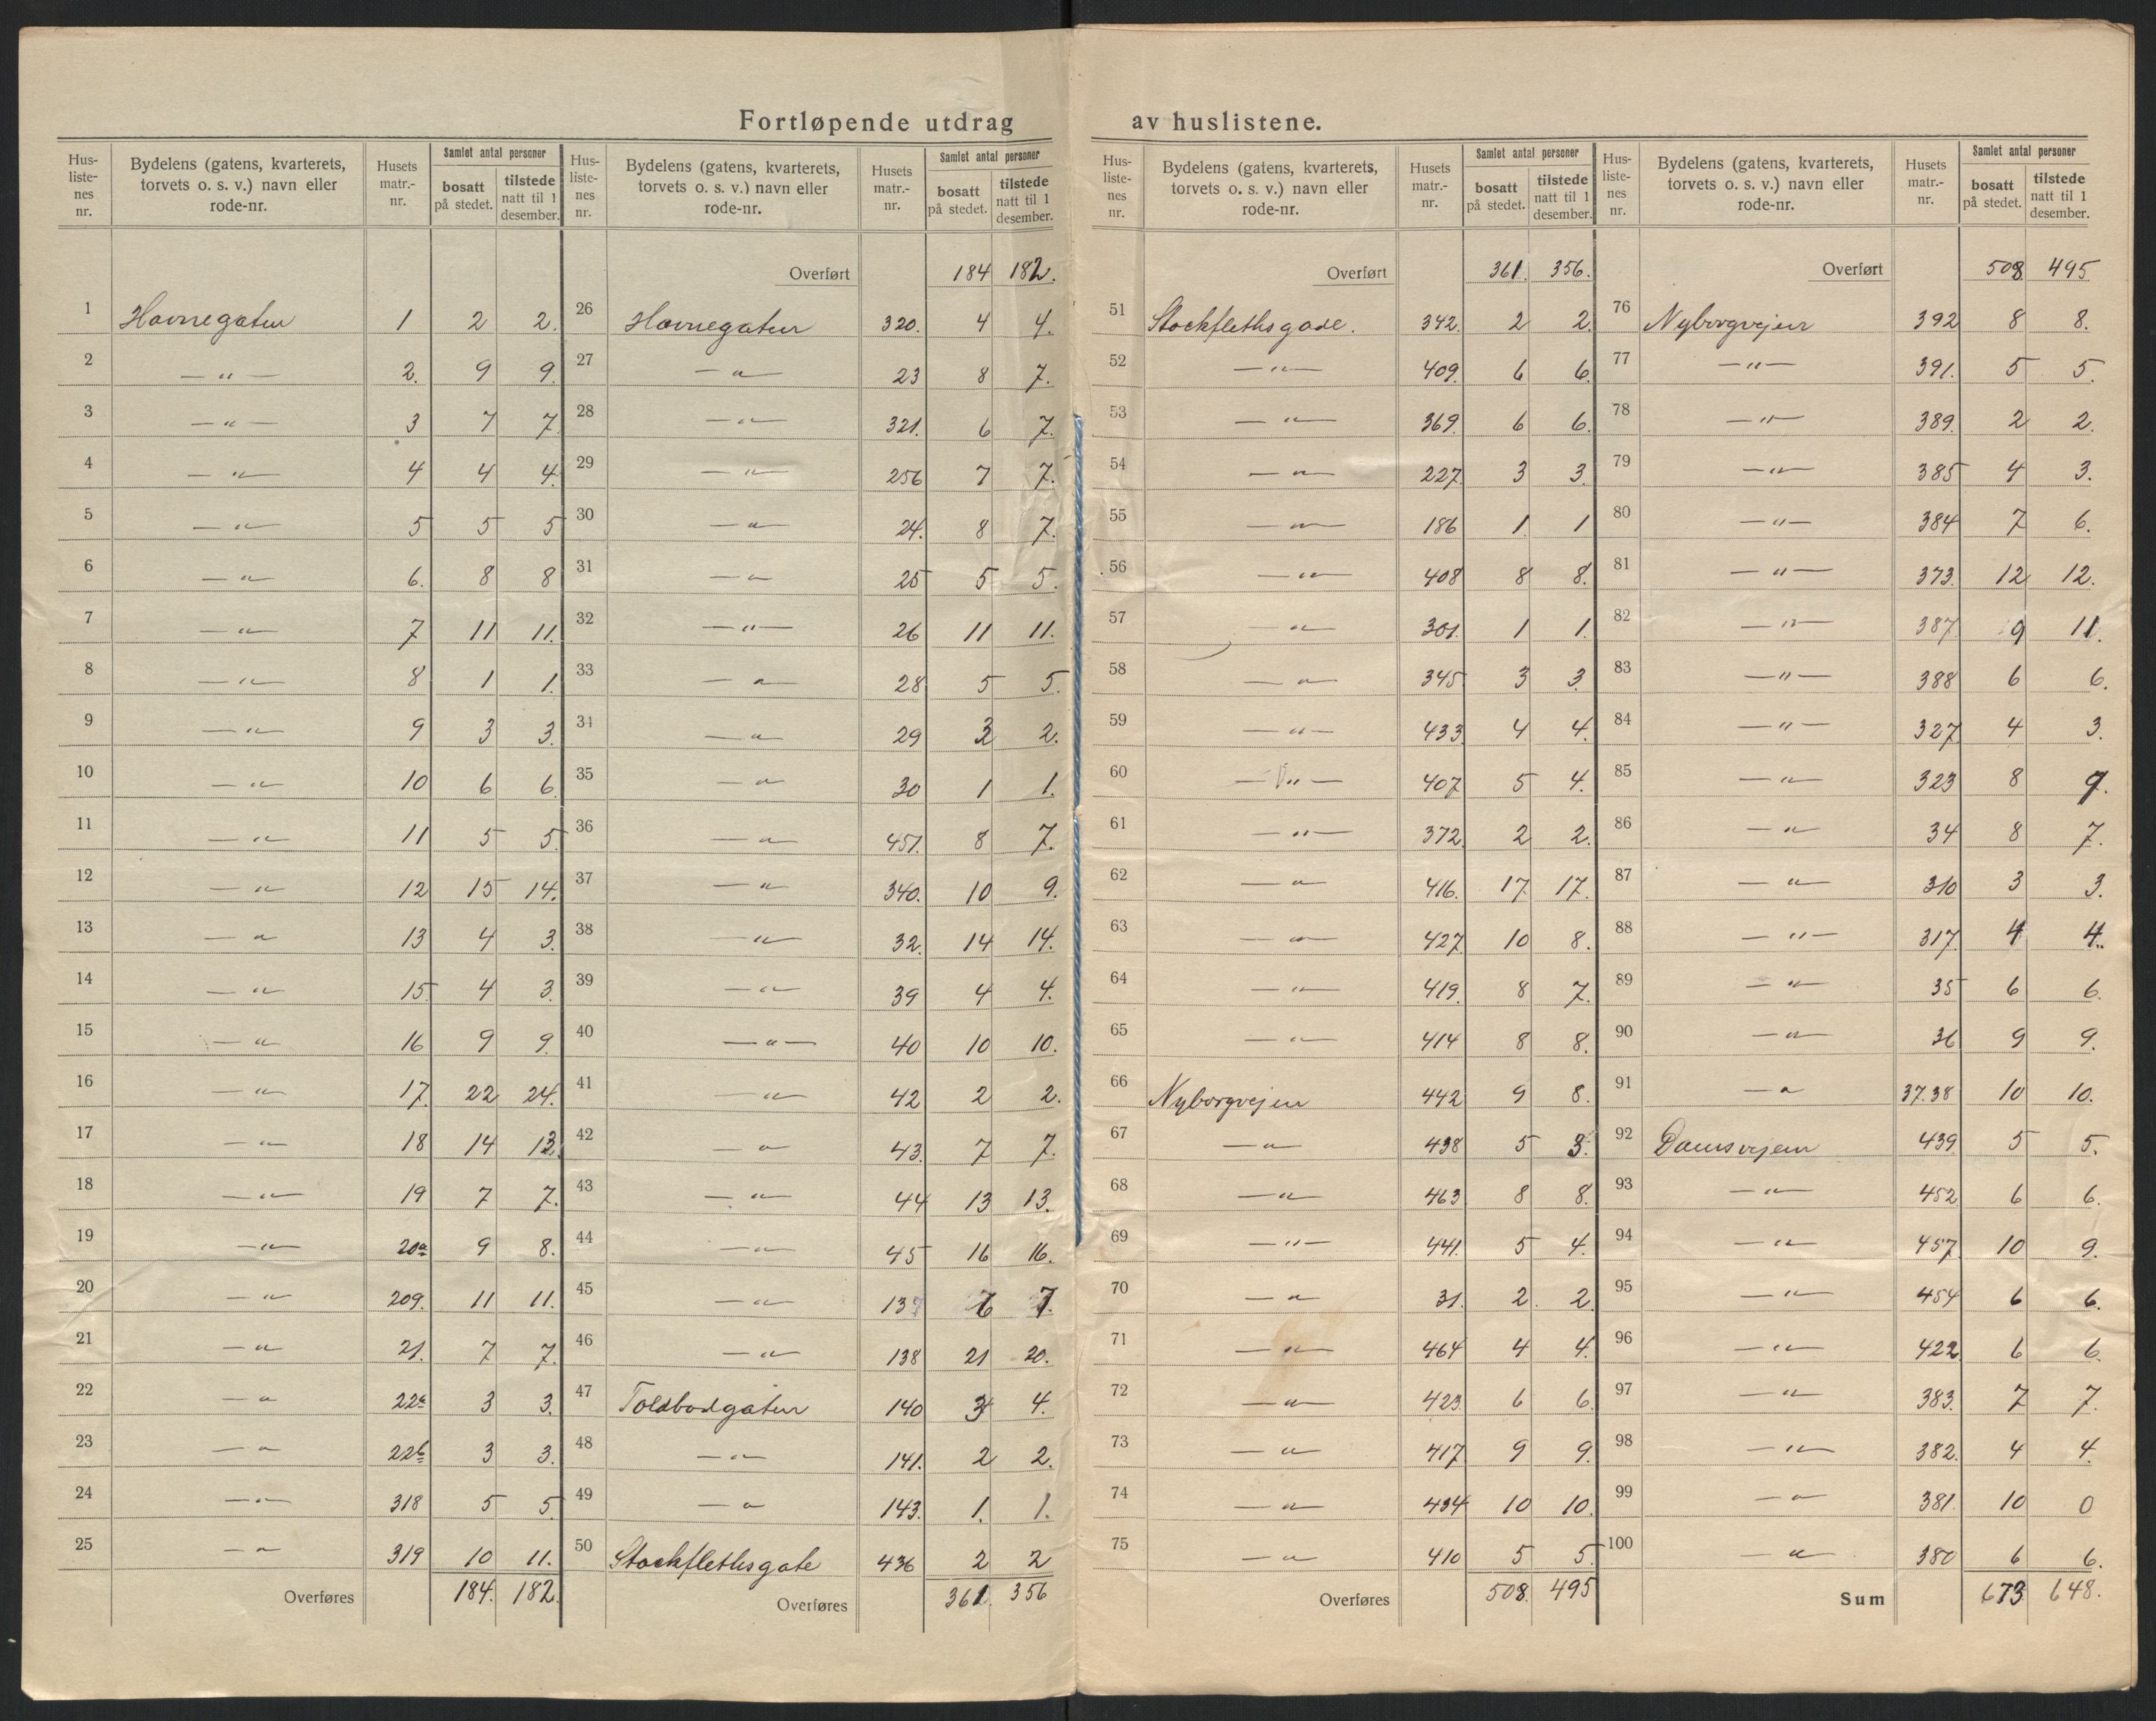 Fortløpende utdrag av huslistene.
Hus-listenes nr. | Bydelens (gatens, kvarterets, torvets o. s. v.) navn eller rode-nr. | Husets matr.-nr. | Samlet antal personer bosatt på stedet. | tilstede natt til 1 desember.
1 Havnegaten 1 2 2.
2 —„— 2. 9 9.
3 —„— 3 7 7.
4 —„— 4 4 4.
5 —„— 5 5 5
6 —„— 6. 8 8
7 —„— 7 11 11.
8 —„— 8 1 1.
9 —„— 9 3 3.
10 —„— 10 6 6.
11 —„— 11 5 5.
12 —„— 12 15 14.
13 —„— 13 4 3.
14 —„— 15 4 3.
15 —„— 16 9 9.
16 —„— 17. 22 24.
17 —„— 18 14 13.
18 —„— 19 7 7.
19 —„— 20a 9 8.
20 —„— 209. 11 11.
21 —„— 21. 7 7.
22 —„— 22a 3 3.
23 —„— 22b 3 3.
24 —„— 318 5 5.
25 —„— 319 10 11.
Overføres 184. 182.
Hus-listenes nr. | Bydelens (gatens, kvarterets, torvets o. s. v.) navn eller rode-nr. | Husets matr.-nr. | Samlet antal personer bosatt på stedet. | tilstede natt til 1 desember.
Overført 184 182.
26 Havnegaten 320. 4 4.
27 —„— 23 8 7.
28 —„— 321. 6 7.
29 —„— 256 7 7.
30 —„— 24. 8 7.
31 —„— 25 5 5.
32 —„— 26 11 11.
33 —„— 28 5 5.
34 —„— 29 2.
35 —„— 30 1 1.
36 —„— 451. 8 7.
37 —„— 340. 10 9.
38 —„— 32. 14 14.
39 —„— 39 4 4.
40 —„— 40 10 10.
41 —„— 42 2 2.
42 —„— 43. 7 7.
43 —„— 44 13 13.
44 —„— 45 16 16.
45 —„— 137 7.
46 —„— 138 21 20.
47 Toldbodgaten 140 4.
48 —„— 141. 2 2.
49 —„— 143. 1. 1.
50 Stockflethsgate 436 2 2
Overføres 361. 356
Hus-listenes nr. | Bydelens (gatens, kvarterets, torvets o. s. v.) navn eller rode-nr. | Husets matr.-nr. | Samlet antal personer bosatt på stedet. | tilstede natt til 1 desember.
Overført 361. 356.
51 Stockflethsgade. 342. 2 2.
52 —„— 409. 6 6.
53 —„— 369. 6 6.
54 —„— 227. 3 3.
55 —„— 186 1 1
56 —„— 408 8 8.
57 —„— 301. 1 1.
58 —„— 345 3 3.
59 —„— 433. 4 4.
60 —„— 407 5 4.
61 —„— 372. 2 2.
62 —„— 416. 17 17.
63 —„— 427. 10 8.
64 —„— 419. 8 7.
65 —„— 414 8 8.
66 Nyborgvejen 442 9 8.
67 —„— 438 5 3.
68 —„— 463 8 8.
69 —„— 441. 5 4.
70 —„— 31. 2. 2.
71 —„— 464 4 4.
72 —„— 423. 6 6.
73 —„— 417 9 9.
74 —„— 434 10 10.
75 —„— 410 5 5.
Overføres 508. 495
Hus-listenes nr. | Bydelens (gatens, kvarterets, torvets o. s. v.) navn eller rode-nr. | Husets matr.-nr. | Samlet antal personer bosatt på stedet. | tilstede natt til 1 desember.
Overført 508. 495
76 Nyborgvejen 392 8 8.
77 —„— 391. 5 5.
78 —„— 389. 2 2.
79 —„— 385 4 3.
80 —„— 384 7 6.
81 —„— 373. 12 12.
82 —„— 387 9 11.
83 —„— 388 6 6.
84 —„— 327. 4 3.
85 —„— 323 8
86 —„— 34 8 7.
87 —„— 310 3 3.
88 —„— 317. 4 4.
89 —„— 35 6 6.
90 —„— 36 9 9.
91 —„— 37.38 10 10.
92 Damsvejen 439 5 5.
93 —„— 452 6 6.
94 —„— 457. 10 9.
95 —„— 454 6 6.
96 —„— 422. 6 6.
97 —„— 383. 7 7.
98 —„— 382. 4 4.
99 —„— 381. 10 0
100 —„— 380 6 6.
Sum 673 648.